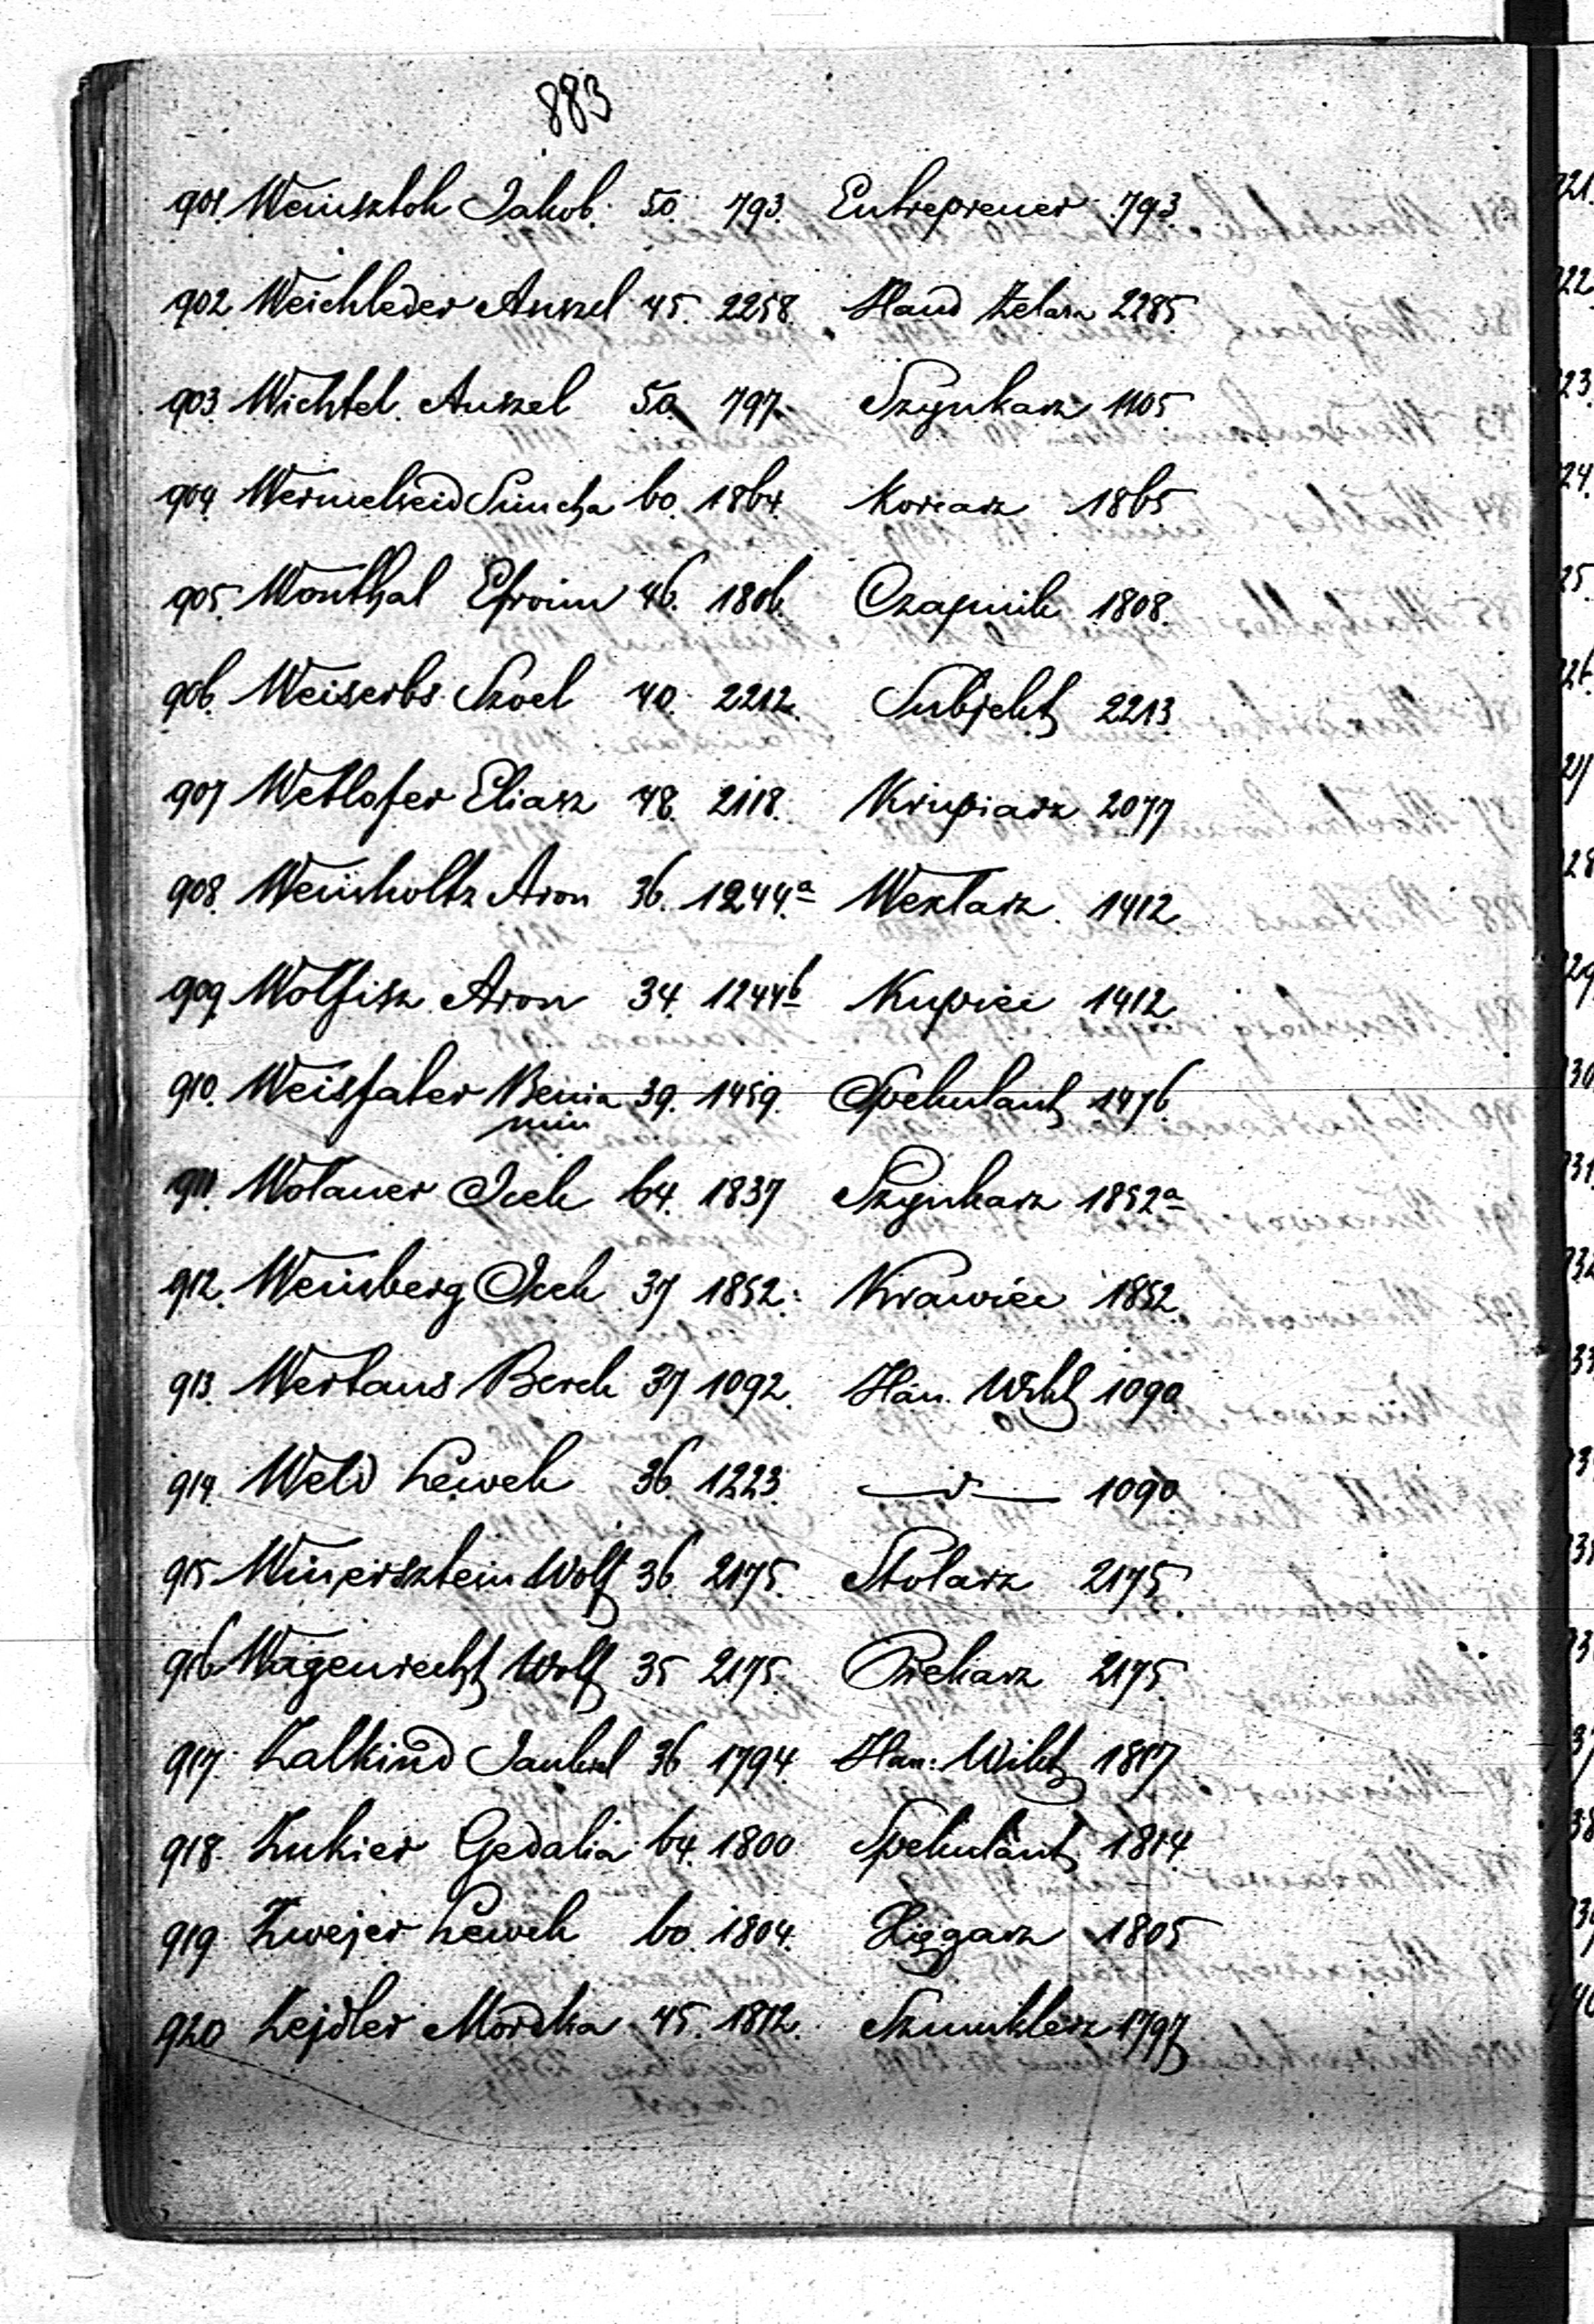 883
901. Weinsztok Jakob. 50. 793. Entreprener 793.
902 Weichleder Anszel 45. 2258. Hand Żelaza 2285.
903 Wichtel Anszel 50. 797. Szynkarz 1105
904. Wermelseid Simcha 60. 1864. Korcarz 1865
905. Wonthal Efroim 46. 1806. Czapnik 1808.
906. Weiserbs Szoel 40. 2212. Subjekt 2213.
907 Wetlofer Eliasz 48. 2118. Krupiarz 2077
908. Weinholtz Aron 36. 1244.a Wexlarz 1412.
909. Wolfisz Aron 34. 1244b Kupiec 1412.
910. Weisfater Benia 39. 1459. Spekulant 1476.
min
911. Wolauer Icek 64. 1837 Szynkarz 1852a
912. Weinberg Icek 37 1852. Krawiec 1852.
913. Wertaus Berek 37 1092. Han. Wikt 1090
914. Weld Lewek 36. 1223. —d— 1090
915 Winersztein Wolf 36. 2175. Stolarz 2175.
916 Wagenrecht Wolf 35 2175. Piekarz 2175.
917. Zalkind Jankiel 36 1794. Han: Wikt 1817
918. Zukier Gedalia 64. 1800 Spekulant 1814.
919 Zwejer Lewek 60. 1804. 1805
920 Zejdler Mordka 45. 1812. Szmuklerz 1797